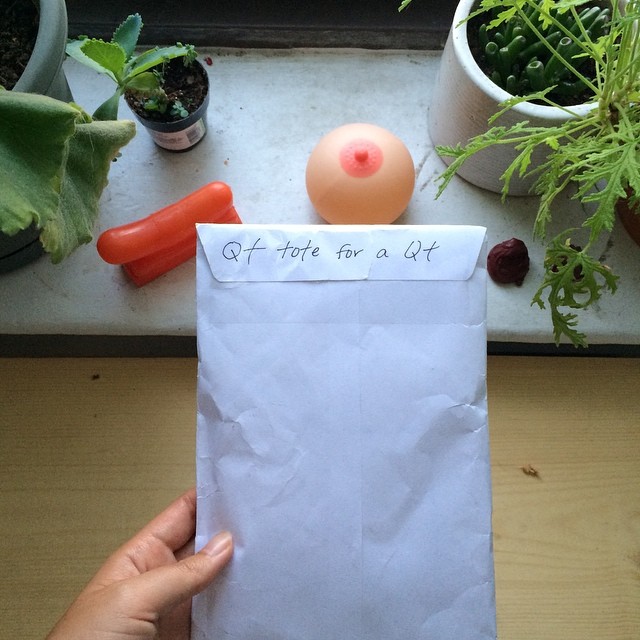 Qt tote for a Qt